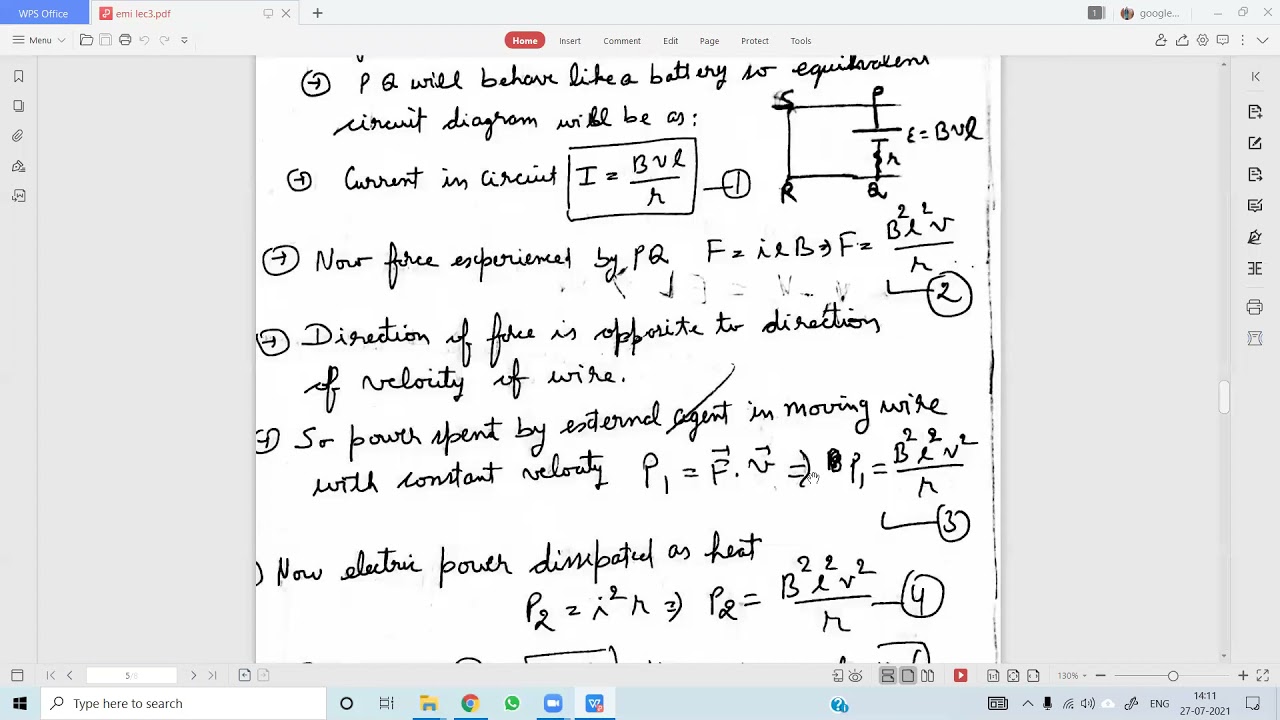 WPS Office
emi lec3.pdf
1
google...
Menu
Home Insert Comment Edit Page Protect Tools
→ PQ will behave like a battery so equivalent
circuit diagram will be as:
S P
ε = Bvl
r
R Q
→ Current in circuit I = Bvl/r —①
→ Now force experienced by PQ F = ilB ⇒ F = B²l²v/r
②
→ Direction of force is opposite to direction
of velocity of wire.
→ So power spent by external agent in moving wire
with constant velocity P₁ = F⃗ . v⃗ ⇒ P₁ = B²l²v²/r
③
Now electric power dissipated as heat
P₂ = i²r ⇒ P₂ = B²l²v²/r —④
5/8
130%
Type here to search
ENG
14:11
27-07-2021